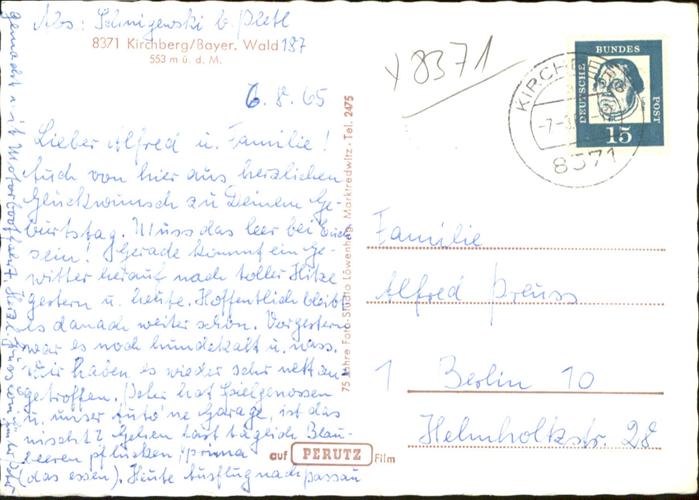 Abs: Schnigewski b. Pletl
8371 Kirchberg/Bayer. Wald 187
553 m ü. d. M.
6.8.65
Lieber Alfred u. Familie!
Auch von hier aus herzlichen
Glückwunsch zu Deinem Ge-
burtstag. Muss das leer bei Euch
sein! Gerade kommt ein Ge-
witter herauf nach toller Hitze
gestern u. heute. Hoffentlich bleibt
es danach weiter schön. Vorgestern
war es noch hundekalt u. nass.
Wir haben es wieder sehr nett an-
getroffen. Peter hat Spielgenossen
u. unser Auto 'ne Garage, ist das
nischt? Gehen fast täglich Blau-
beeren pflücken, prima
(das essen). Heute Ausflug nach Passau
gemacht mit Motorbootfahrt. Herzl.
75 Jahre Foto-Studio Löwenhag, Marktredwitz, Tel. 2475
auf PERUTZ Film
x 8371
DEUTSCHE BUNDESPOST
15
KIRCHBERG
8371
Familie
Alfred Preuss
1 Berlin 10
Helmholtzstr. 28